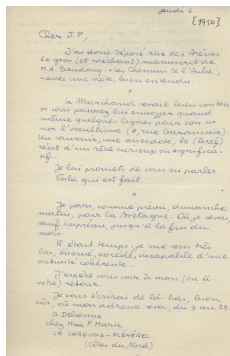 jeudi 6
[1950]
Cher J.P.,
J'ai donc déposé rue des Arènes
le gros (et méchant) manuscrit de
M.A. Baudouy "Les Chemins de l'Aube",
avec une note, bien entendu.
*
La Marchand serait bien conten
si vous pouviez lui envoyer quand
même quelques lignes pour son n°
sur l'occultisme (8, rue
Un souvenir, une anecdote, le (bref)
récit d'un rêve curieux ou significa-
tif.
Je lui promets de vous en parler.
Voilà qui est fait.
*
Je pars, comme prévu, dimanche
matin, pour la Bretagne. Où je serai,
sauf imprévu, jusqu'à la fin du
mois.
Il était temps, je me sens très
las, énervé, excédé, incapable d'une
activité cohérente.
J'espère vous voir à mon (ou à
votre) retour.
Je vous écrirai de là-bas, bien
sûr, où mon adresse sera, du 9 au 23.
à
chez Mme F. Marie
LA
(Côtes du Nord)